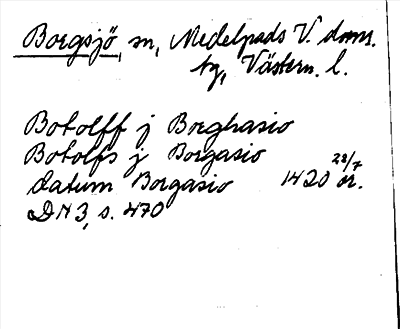 Borgsjö, sn, Medelpads V. doms.
tg, Västern. l.
Botolff j Borghasio
Botolfs j Borgasio
datum Borgasio 1420 28/7 or.
DN 3, s. 470